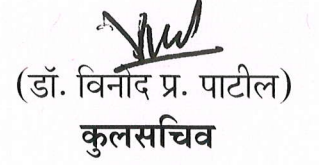 (डॉ. विनोद प्र. पाटील)
कुलसचिव